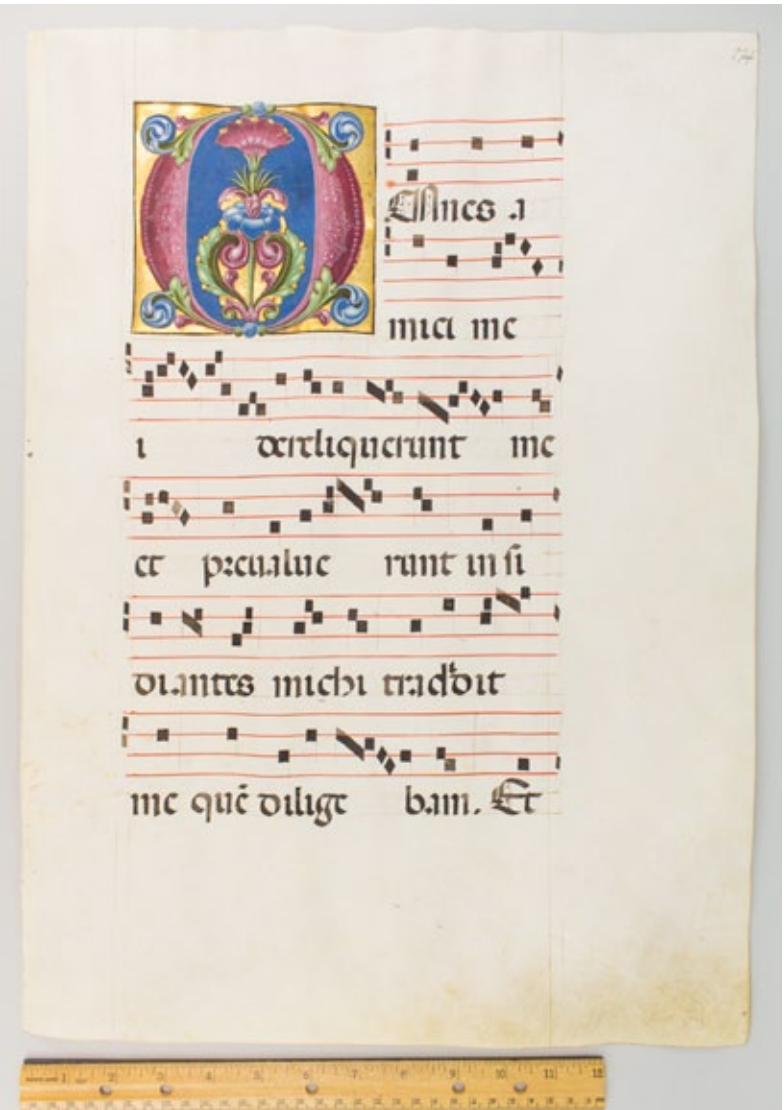 Omnes a
mici me
i dereliquerunt me
et preualue runt insi
diantes michi tradidit
me quē dilige bam. Et
1 2 3 4 5 6 7 8 9 10 11 12